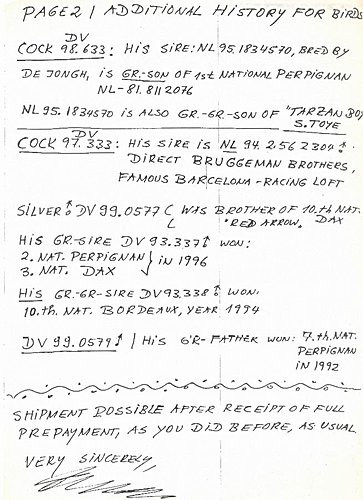 PAGE 2 | ADDITIONAL HISTORY FOR BIRDS
DV
COCK 98.633: HIS SIRE: NL 95.1834570, BRED BY
DE JONGH, IS GR.-SON OF 1st NATIONAL PERPIGNAN
NL-81.8112076
NL 95.1834570 IS ALSO GR.-GR-SON OF "TARZAN BOY
S. TOYE
DV
COCK 97.333: HIS SIRE IS NL 94.2562304
DIRECT BRUGGEMAN BROTHERS,
FAMOUS BARCELONA-RACING LOFT
SILVER DV 99.0577 ( WAS BROTHER OF 10.th NAT.
"RED ARROW. DAX
HIS GR-SIRE DV 93.337 WON:
2. NAT. PERPIGNAN } IN 1996
3. NAT. DAX
HIS GR-GR-SIRE DV 93.338 WON.
10.th. NAT. BORDEAUX, YEAR 1994
DV 99.0579 / HIS GR-FATHER WON: 7.th. NAT.
PERPIGNAN
IN 1992
SHIPMENT POSSIBLE AFTER RECEIPT OF FULL
PREPAYMENT, AS YOU DID BEFORE, AS USUAL
VERY SINCERELY,